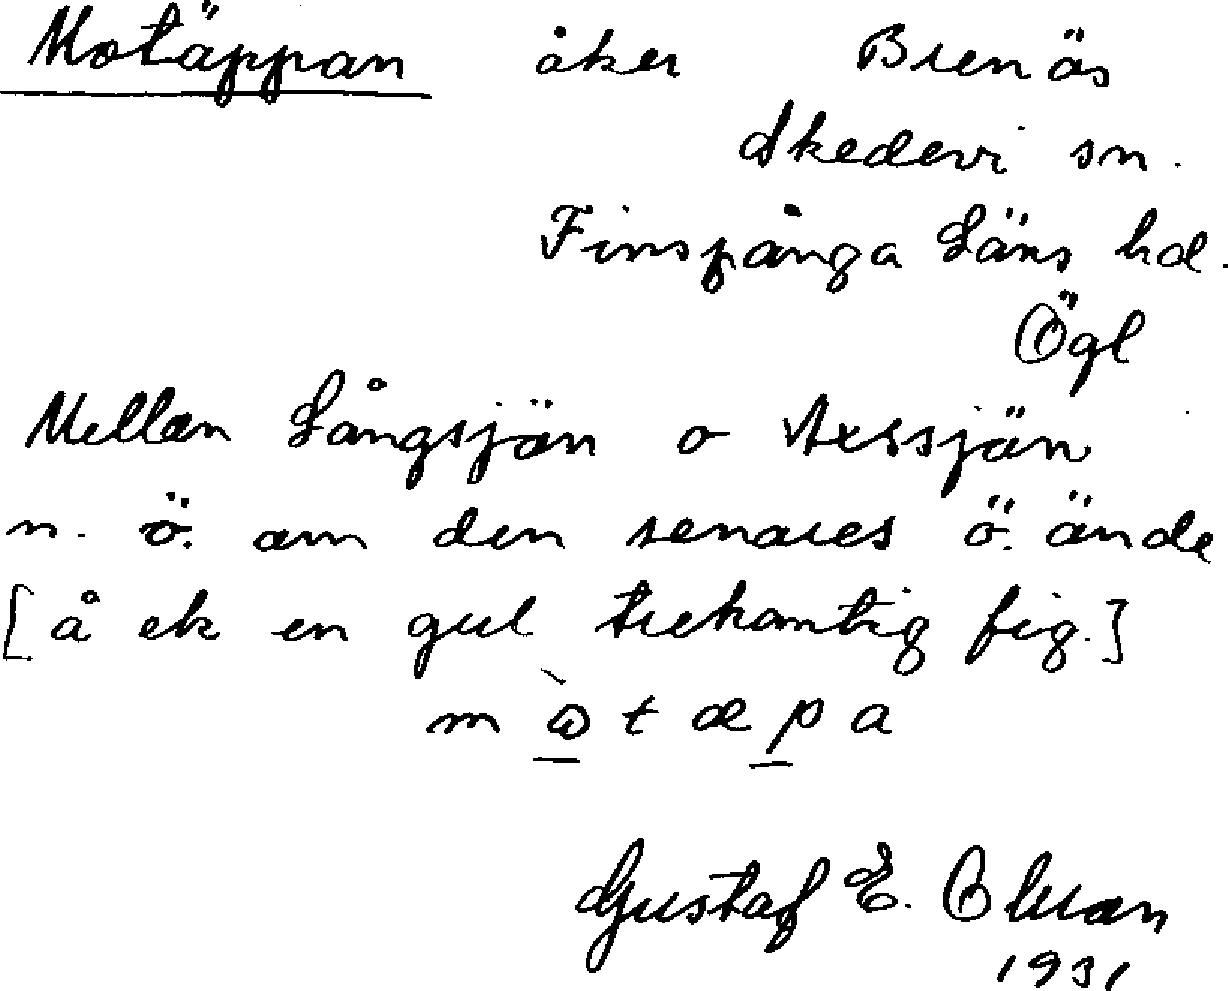 Motäppan åker Brenäs
Skedevi sn.
Finspånga Läns hd.
Ögl
Mellan Långsjön o Axsjön
n. ö. om den senares ö. ände
[å ek en gul trekantig fig.]
m ὼ t æ p a
Gustaf E. Olman
1931